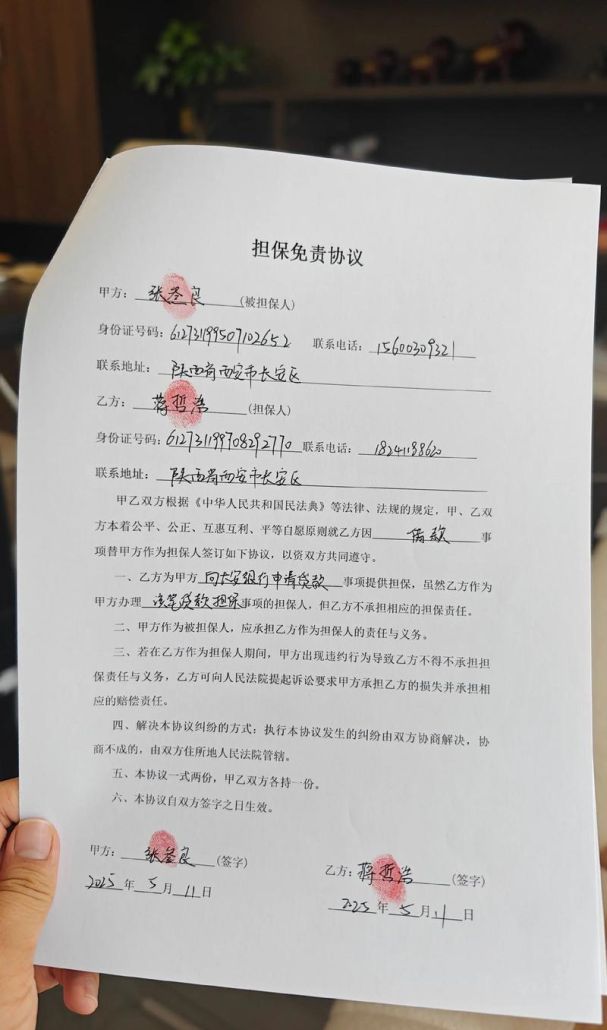 担保免责协议
甲方：张圣良(被担保人)
身份证号码：612731199507102652 联系电话：15600309321
联系地址：陕西省西安市长安区
乙方：蒋哲浩(担保人)
身份证号码：612731199708292770 联系电话：18241188620
联系地址：陕西省西安市长安区
甲乙双方根据《中华人民共和国民法典》等法律、法规的规定，甲、乙双
方本着公平、公正、互惠互利、平等自愿原则就乙方因 借款 事
项替甲方作为担保人签订如下协议，以资双方共同遵守。
一、乙方为甲方 向长安银行申请贷款 事项提供担保，虽然乙方作为
甲方办理 该笔贷款担保事项的担保人，但乙方不承担相应的担保责任。
二、甲方作为被担保人，应承担乙方作为担保人的责任与义务。
三、若在乙方作为担保人期间，甲方出现违约行为导致乙方不得不承担担
保责任与义务，乙方可向人民法院提起诉讼要求甲方承担乙方的损失并承担相
应的赔偿责任。
四、解决本协议纠纷的方式：执行本协议发生的纠纷由双方协商解决，协
商不成的，由双方住所地人民法院管辖。
五、本协议一式两份，甲乙双方各持一份。
六、本协议自双方签字之日生效。
甲方：张圣良(签字)
乙方：蒋哲浩(签字)
2025年5月11日
2025年5月11日